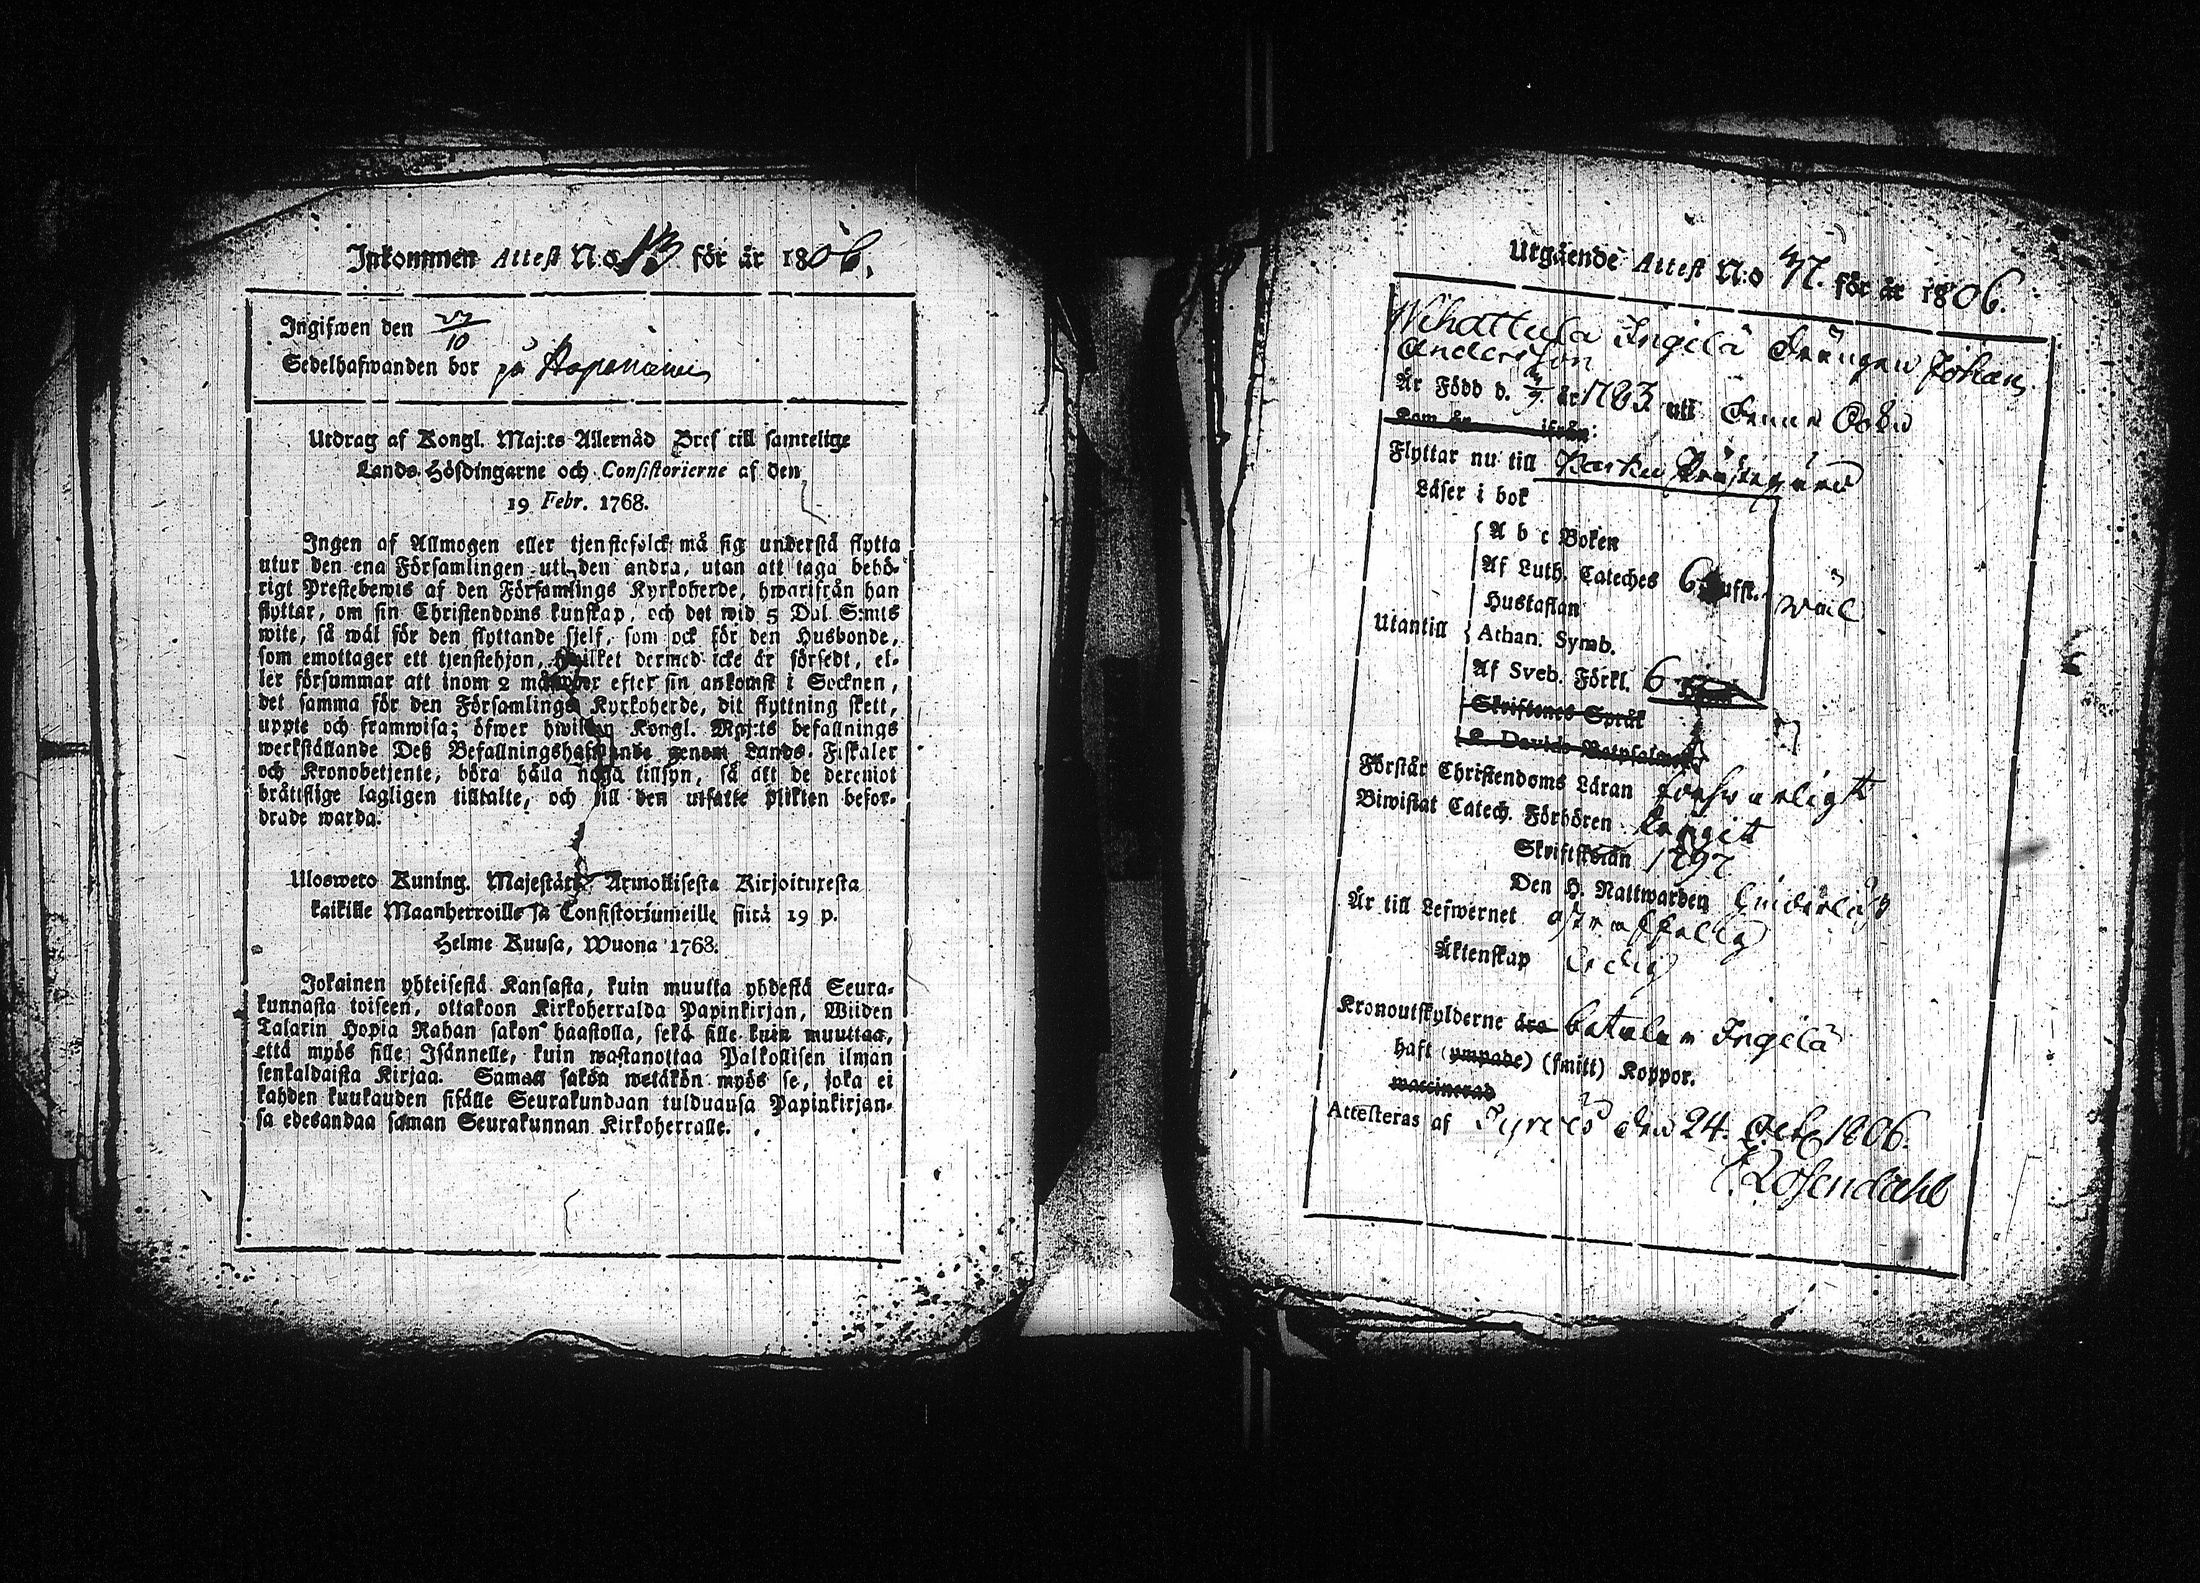 Inkommen Attest N:o 13 för år 1806.
Ingifwen den 27/10
Sedelhafwanden bor på Haponiemi
Utdrag af Kongl. Maj:ts Allernåd Bref till samtelige
Lands Höfdingarne och Consistorierne af den
19 Febr. 1768.
Ingen af Allmogen eller tjenstefolck må sig understå flytta
utur den ena Församlingen uti den andra, utan att taga behö-
rigt Prestebewis af den Församlings Kyrkoherde, hwarifrån han
flyttar, om sin Christendoms kunskap, och det wid 5 Dal. S:mts
wite, så wäl för den flyttande sjelf, som ock för den Husbonde,
som emottager ett tjenstehjon, hwilket dermed icke är försedt, el-
ler försummar att inom 2 månader efter sin ankomst i Socknen,
det samma för den Församlings Kyrkoherde, dit flyttning skett,
uppte och framwisa; öfwer hwilken Kongl. Maj:ts befallnings
werkställande Deß Befallningshafwande genom Lands-Fiskaler
och Kronobetjente, böra hålla noga tillsyn, så att de deremot
brättslige lagligen tilltalte, och till den utsatte plikten befor-
drade warda.
Ulosweto Kuning. Majestätin Armollisesta Kirjoituxesta
kaikille Maanherroille ja Consistoriumeille siitä 19 p.
Helme Kuusa, Wuona 1768.
Jokainen yhteisestä Kansasta, kuin muutta yhdestä Seura-
kunnasta toiseen, ottakoon Kirkoherralda Papinkirjan, Wiiden
Talarin Hopia Rahan sakon haastolla, sekä sille kuin muuttaa,
että myös sille Isännelle, kuin wastanottaa Palkollisen ilman
senkaldaista Kirjaa. Saman sakon wetäkön myös se, joka ei
kahden kuukauden sisälle Seurakundaan tulduansa Papinkirjan-
sa edesandaa saman Seurakunnan Kirkoherralle.
Utgående Attest N:o 47. för år 1806.
Wihattula Ingilä Drängen Johan
Andersson
Är Född d. år 1783 uti denna Sokn
Kom år ifrån:
Flyttar nu till Karku Prästegård
Läser i bok
A b c Boken
Af Luth. Cateches 6 Hufst.
wäl
Hustaflan
Utantill
Athan. Symb.
Af Sveb. Förkl. 6
Skriftenes Språk
K. Davids Botpsalmer
Förstår Christendoms Läran förswarligt
Biwistat Catech. Förhören flitigt
Skriftskolan 1797
Den H. Nattwarden
Är till Lefwernet ostraffelig
Äktenskap ledig
Kronoutskylderne äro betalar Ingilä
haft (ympade) (smitt) Koppor.
waccinerad
Attesteras af Tyrvis den 24. Octob 1806.
E. Rosendahl